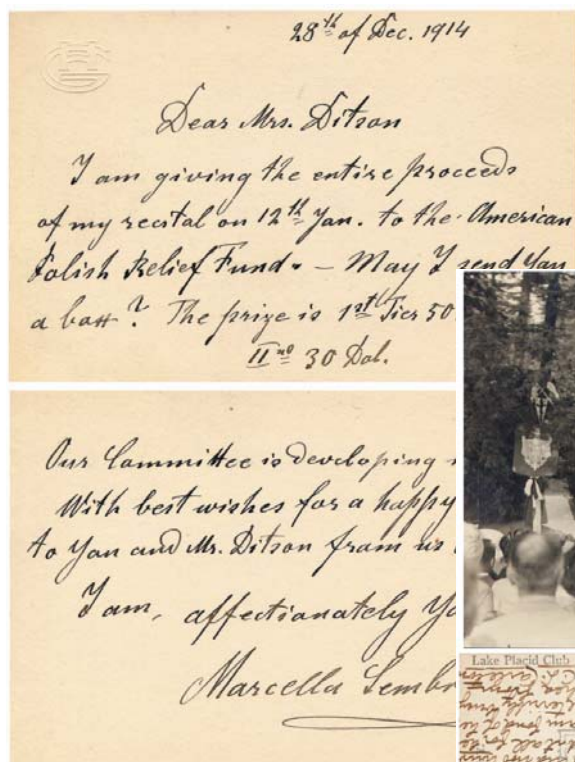 28th of Dec. 1914
Dear Mrs. Ditson
I am giving the entire proceeds
of my recital on 12th Jan. to the American
Polish Relief Fund. – May I send you
a box? The prize is 1st Tier 50
IInd 30 Dol.
Our Committee is developing
With best wishes for a happy
to you and Mr. Ditson from us
I am, affectionately Yo
Marcella Sembr
Lake Placid Club